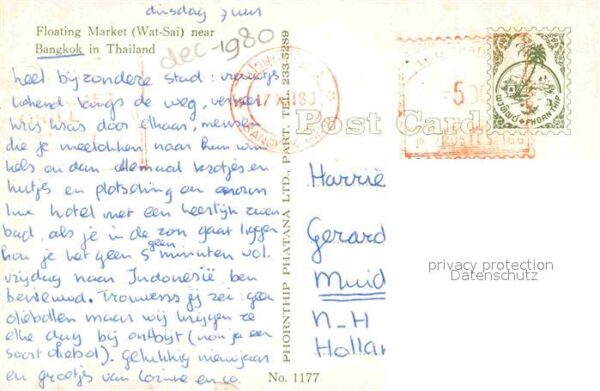 dinsdag 7 uur
Floating Market (Wat-Sai) near
Bangkok in Thailand
dec 1980
heel bijzondere stad: vrouwtjes
kokend langs de weg, verkeer
kris kras door elkaar, mensen
die je meelokken naar hun win
kels en dan allemaal krotjes en
hutjes en plotseling een enorm
luxe hotel met een heerlijk zwem
bad, als je in de zon gaat liggen
hou je het geen 5 minuten vol.
vrijdag naar Indonesië ben
benieuwd. Trouwens jij zei: geen
oliebollen maar wij krijgen ze
elke dag bij ontbijt (nou ja een
soort oliebol). Gelukkig nieuwjaar
en groetjes van Corine en co.
PHORNTHIP PHATANA LTD., PART. TEL. 233-5289
No. 1177
17 XII 80
BANGKOK
500
Post Card
PHORNTHIP
Harrië
Gerard
Muid
N-H
Hollan
privacy protection
Datenschutz